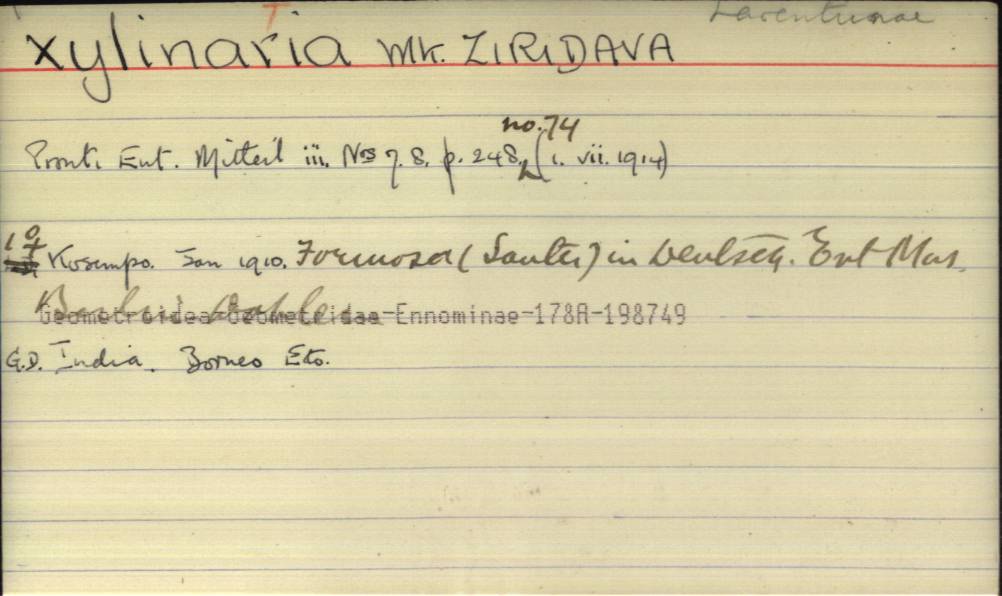 T Larentiinae
xylinaria Mk. ZIRIDAVA
no. 74
Prout. Ent. Mitteil iii. Nos 7. 8. p. 248. (1. vii. 1914)
1 ♀ Kosempo. Jan 1910. Formosa (Sauter) in Deutsch. Ent Mus.
Berlin Dahlem
Geometroidea-Geometridae-Ennominae-178A-198749
G.D. India. Borneo Etc.